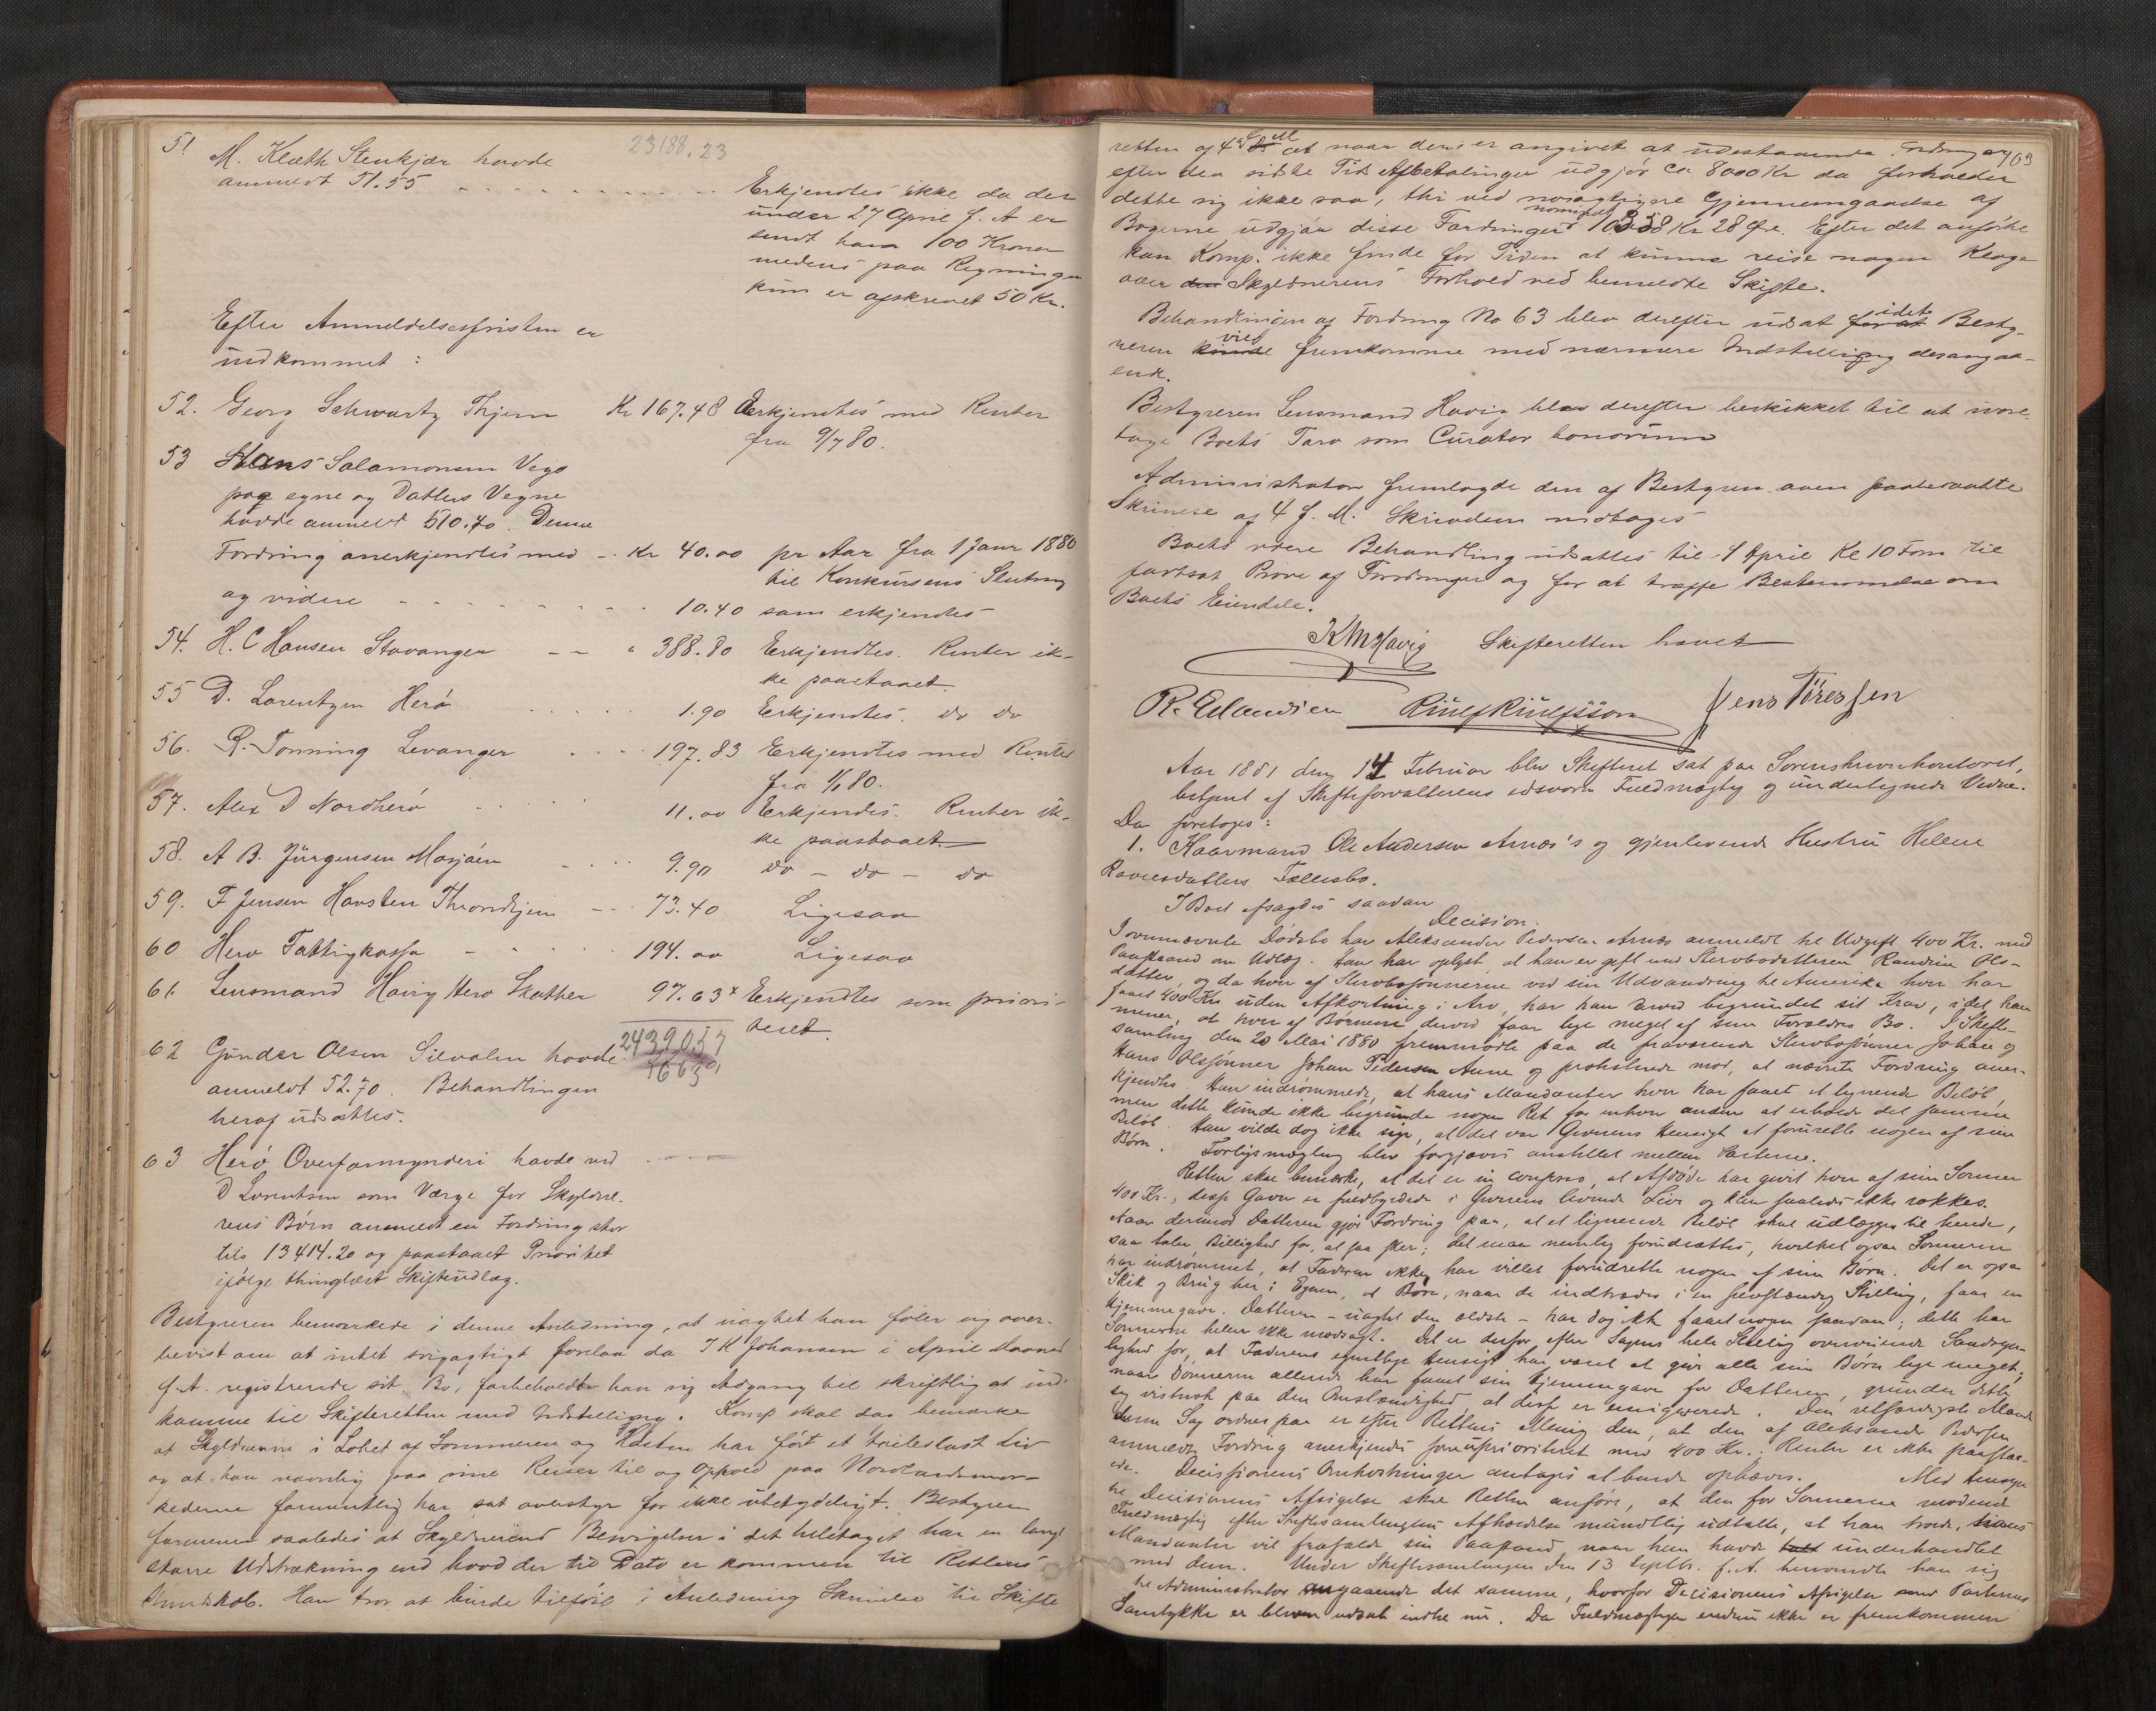 23188.23
51 M. Klæth Stenkjær havde
anmeldt Tl. 55 Erkjendtes ikke da der
under 27 April f. A er
sendt ham 100 Kroner
medens paa Regningen
kun er afskrevet 50 Kr.
Efter Anmeldelsesfristen er
indkommet:
52. Georg Schwartz Thjem Kr 167.48 Erkjendtes med Renter
fra 9/7 80.
53 Hans Salamonsen Vega
paa egne og Datters Vegne
havde anmeldt 510.40. Denne
Fordring anerkjendtes med Kr 40.00 pr Aar fra 1 Janr 1880
til Konkursens Slutning
og videre 10.40 som erkjendtes
54. H. C Hansen Stavanger " 388.80 Erkjendtes. Renter ik-
ke paastaaet.
55 D. Lorentzen Herö 1.90 Erkjendtes. do do
56. R. Tonning Levanger 197.83 Erkjendtes med Renter
fra 1/1 80.
57. Alex D Nordherö 11.00 Erkjendes. Renter ik-
ke paastaaet.
58. A B. Jürgensen Mosjøen 9.90 do - do - do
59. F Jensen Havsten Throndhjem 73.40 Ligesaa
60 Herø Fattigkasse 194.00 Ligesaa
61. Lensmand Havig Herø Skatter 97.63 Erkjendtes som priori-
teret.
62 Gunder Olsen Silvalen havde
anmeldt 52.70. Behandlingen
heraf udsattes.
63 Herö Overformynderi havde ved
D Lorentsen som Værge for Skyldne-
rens Børn anmeldt en Fordring stor
tils 13414.20 og paastaaet Prioritet
ifölge thinglæst Skifteudlæg.
Bestyreren bemærkede i denne Anledning, at uagtet han föler sig over-
bevist om at intet svigagtigt forelaa da J K Johansen i April Maaned
f. A. registrerede sit Bo, forbeholdte han sig Adgang til skriftlig at ind-
komme til Skifteretten med Indstilling. Komp skal dog bemærke
at Skyldneren i Löbet af Sommeren og Hösten har fört et Liv
og at han navnlig paa sine Reiser til og Ophold paa Nordlandsmar-
kederne formentlig har sat overstyr for ikke ubetydeligt. Bestyreren
formener saaledes at Skyldnerens Besvigelser i det heletaget har en langt
större Udstrækning end hvad der til Dato er kommen til Rettens
Kundskab. Han tror at burde tilföie i Anledning Skrivelse til Skifte
163
retten af 4 d. M at naar der er angivet at udestaaende Fordringer
efter den sidste Tids Afbetalinger udgjör ca 8000 Kr da forholder
dette sig ikke saa, thi ved nöiagtigere Gjennemgaaelse af
Bøgerne udgjör disse Fordringer nominelt 10338 Kr 28 Øre. Efter det anförte
kan Komp. ikke finde for Tiden at kunne reise nogen Klage
over den Skyldnerens Forhold ved bemeldte Skifte.
Behandlingen af Fordring No 63 blev derefter udsat for at idet Besty-
reren kunde vil fremkomme med nærmere Indstilling desangaa-
ende.
Bestyreren Lensmand Havig blev derefter beskikket til at vare-
tage Boets Tarv som Curator bonorum
Administrator fremlagde den af Bestyreren oven paaberaabte
Skrivelse af 4 d. M. Skrivelsen indtages
Boets videre Behandling udsattes til 4 April Kl 10 Form til
fortsat Pröve af Fordringer og for at træffe Bestemmelse om
Boets Eiendele.
K M Havig Skifteretten hævet
R. Erlandsen Rulf Rulfsson Jens Töressen
Aar 1881 den 14 Februar blev Skifteret sat paa Sorenskriverkontoret,
betjent af Skifteforvalterens edsvorne Fuldmægtig og undertegnede Vidner.
Da foretoges:
1. Kaarmand Ole Andersen Arnæs's og gjenlevende Hustru Helene
Ravnsdatters Fællesbo.
I Boet afsagdes saadan
Decision.
I ovennævnte Dødsbo har Aleksander Pedersen Arnæs anmeldt til Udgift 400 Kr. med
Paastand om Udlæg. Han har oplyst, at han er gift med Stervbodatteren Randine Ols-
datter, og da hver af Stervbosønnerne ved sin Udvandring til Amerika hver har
faaet 400 Kr uden Afkortning i Arv, har han derved begrundet sit Krav, idet han
mener, at hver af Børnene derved faar lige meget af sine Forældres Bo. I Skifte-
samling den 20 Mai 1880 fremmødte paa de fraværende Stervbosønner Johan og
Hans Olssønner Johan Pedersen Aune og protesterede mod, at nævnte Fordring aner-
kjendtes. Han indrømmede, at hans Mandanter hver har faaet et lignende Beløb,
men dette kunde ikke begrunde nogen Ret for enhver anden at erholde det samme
Beløb. Han vilde dog ikke sige, at det var Giverens Hensigt at forurette nogen af sine
Børn. Forligsmægling blev forgjæves anstillet mellem Parterne.
Retten skal bemærke, at det er in confesso, at Afdøde har givet hver af sine Sønner
400 Kr., disse Gaver er fuldbyrdede i Giverens levende Live og kan saaledes ikke rokkes.
Naar derimod Datteren gjør Fordring paa, at et lignende Beløb skal udlægges til hende,
saa taler Billighed for, at saa sker; det maa nemlig forudsættes, hvilket ogsaa Sønnerne
har indrømmet, at Faderen ikke har villet forurette nogen af sine Børn. Det er ogsaa
Skik og Brug her i Egnen, at Børn, naar de indtræder i en selvstændig Stilling, faar en
Hjemmegave. Datteren – uagtet den ældste – har dog ikke faaet nogen saadan; dette har
Sønnerne heller ikke modsagt. Det er derfor efter Sagens hele Stilling overveiende Sandsyn-
lighed for, at Faderens egentlige Hensigt har været at give alle sine Børn lige meget;
naar Sønnerne allerede har faaet sin Hjemmegave før Datteren, grunder dette
sig vistnok paa den Omstændighed, at disse er emigrerede. Den retfærdigste Maade
denne Sag ordnes paa er efter Rettens Mening den, at den af Aleksander Pedersen
anmeldte Fordring anerkjendes som uprioriteret med 400 Kr. Renter er ikke paastaa-
ede. Decisionens Omkostninger antages at burde ophæves. Med Hensyn
til Decisionens Afsigelse skal Retten anføre, at den for Sønnerne mødende
Fuldmægtig efter Skiftesamlingens Afholdelse mundtlig udtalte, at han troede, hans
Mandanter vil frafalde sin Paastand, naar han havde underhandlet
med dem. Under Skiftesamlingen den 13 Septbr. f. A. henvendte han sig
til Administrator angaaende det samme, hvorfor Decisionens Afsigelse med Parternes
Samtykke er bleven udsat indtil nu. Da Fuldmægtigen endnu ikke er fremkommen